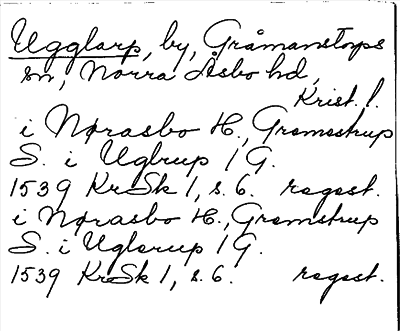 Ugglarp, by, Gråmanstorps
sn, Norra Åsbo hd,
Krist. l.
i Nørasbo H., Gremestrup
S. i Uglrup 1 G.
1539 KrSk 1, s. 6. regest.
i Nørasbo H., Gremstrup
S. i Uglerup 1 G.
1539 KrSk 1, s. 6. regest.